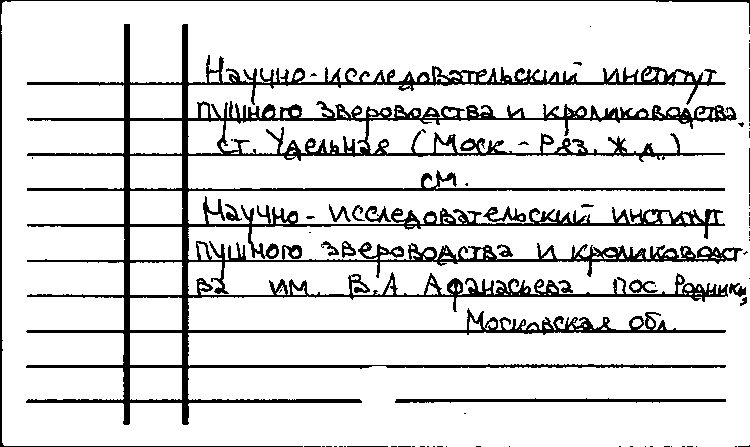 Научно-исследовательский институт
пушного звероводства и кролиководства.
ст. Удельная (Моск.-Ряз. ж.д.)
см.
Научно-исследовательский институт
пушного звероводства и кролиководст-
ва им. В.А. Афанасьева. пос. Родники,
Московская обл.